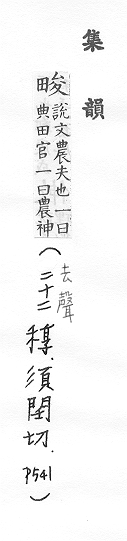 集韻
畯 說文農夫也一曰
典田官一曰農神
(去聲
二十二稕.須閏切.
P541)